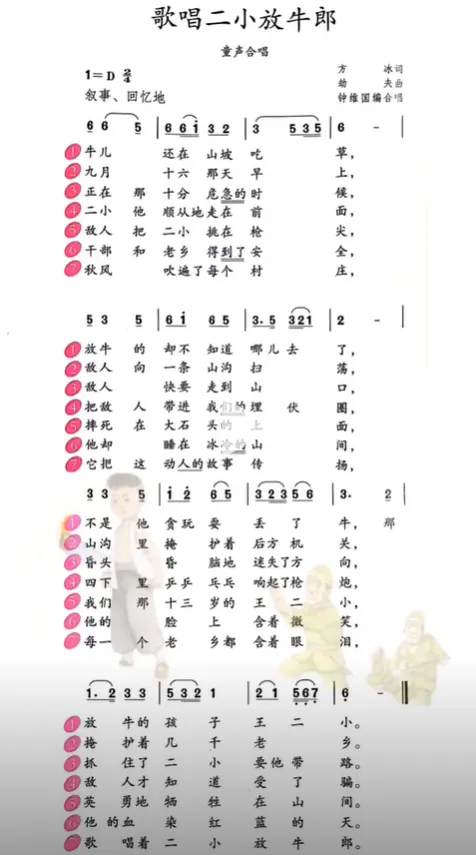 歌唱二小放牛郎
童声合唱
1=D 2/4
方 冰词
劫 夫曲
叙事、回忆地
钟维国编合唱
6 6 5 | 6 6 i 3 2 | 3 5 3 5 | 6 - |
① 牛儿 还在 山坡 吃 草,
② 九月 十六 那天 早 上,
③ 正在 那 十分 危急的 时 候,
④ 二小 他 顺从地 走在 前 面,
⑤ 敌人 把 二小 挑在 枪 尖,
⑥ 干部 和 老乡 得到了 安 全,
⑦ 秋风 吹遍了 每个 村 庄,
5 3 5 | 6 i 6 5 | 3. 5 3 2 1 | 2 - |
① 放牛 的 却不 知道 哪儿 去 了,
② 敌人 向 一条 山沟 扫 荡,
③ 敌人 快要 走到 山 口,
④ 把敌 人 带进 我们的 埋 伏 圈,
⑤ 摔死 在 大石 头的 上 面,
⑥ 他却 睡在 冰冷的 山 间,
⑦ 它把 这 动人的 故事 传 扬,
3 3 5 | i 2 6 5 | 3 2 3 5 6 | 3. 2 |
① 不是 他 贪玩 耍 丢 了 牛, 那
② 山沟 里 掩 护着 后方 机 关,
③ 昏头 昏 脑地 迷失了 方 向,
④ 四下 里 乒乒 乓乓 响起了 枪 炮,
⑤ 我们 那 十三 岁的 王 二 小,
⑥ 他的 脸 上 含着 微 笑,
⑦ 每一 个 老 乡都 含着 眼 泪,
1. 2 3 3 | 5 3 2 1 1 | 2 1 5 6 7 | 6 - |
① 放 牛的 孩 子 王 二 小。
② 掩 护着 几 千 老 乡。
③ 抓 住了 二 小 要他 带 路。
④ 敌 人才 知 道 受 了 骗。
⑤ 英 勇地 牺 牲 在 山 间。
⑥ 他 的血 染 红 蓝 的 天。
⑦ 歌 唱着 二 小 放 牛 郎。